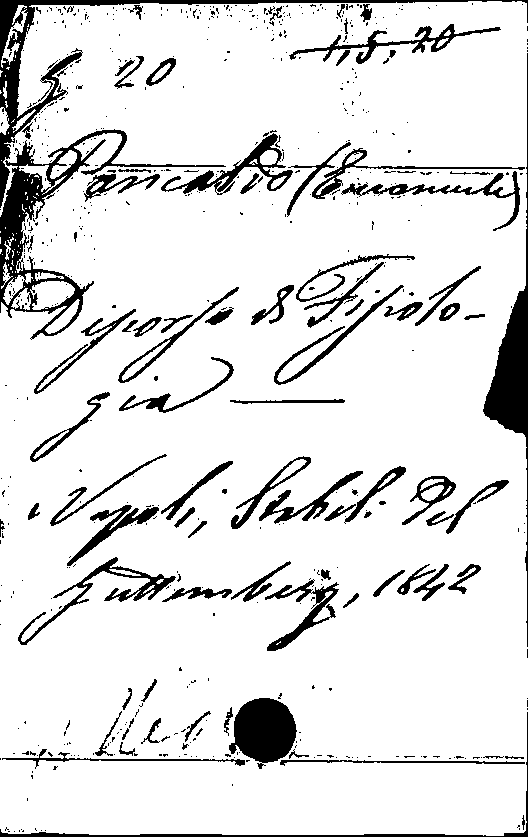 G. 20
1, 5, 20
Pancaldo (Emanuele)
Discorso di Fisiolo-
gia —
Napoli, Stabil: Del
Guttemberg, 1842